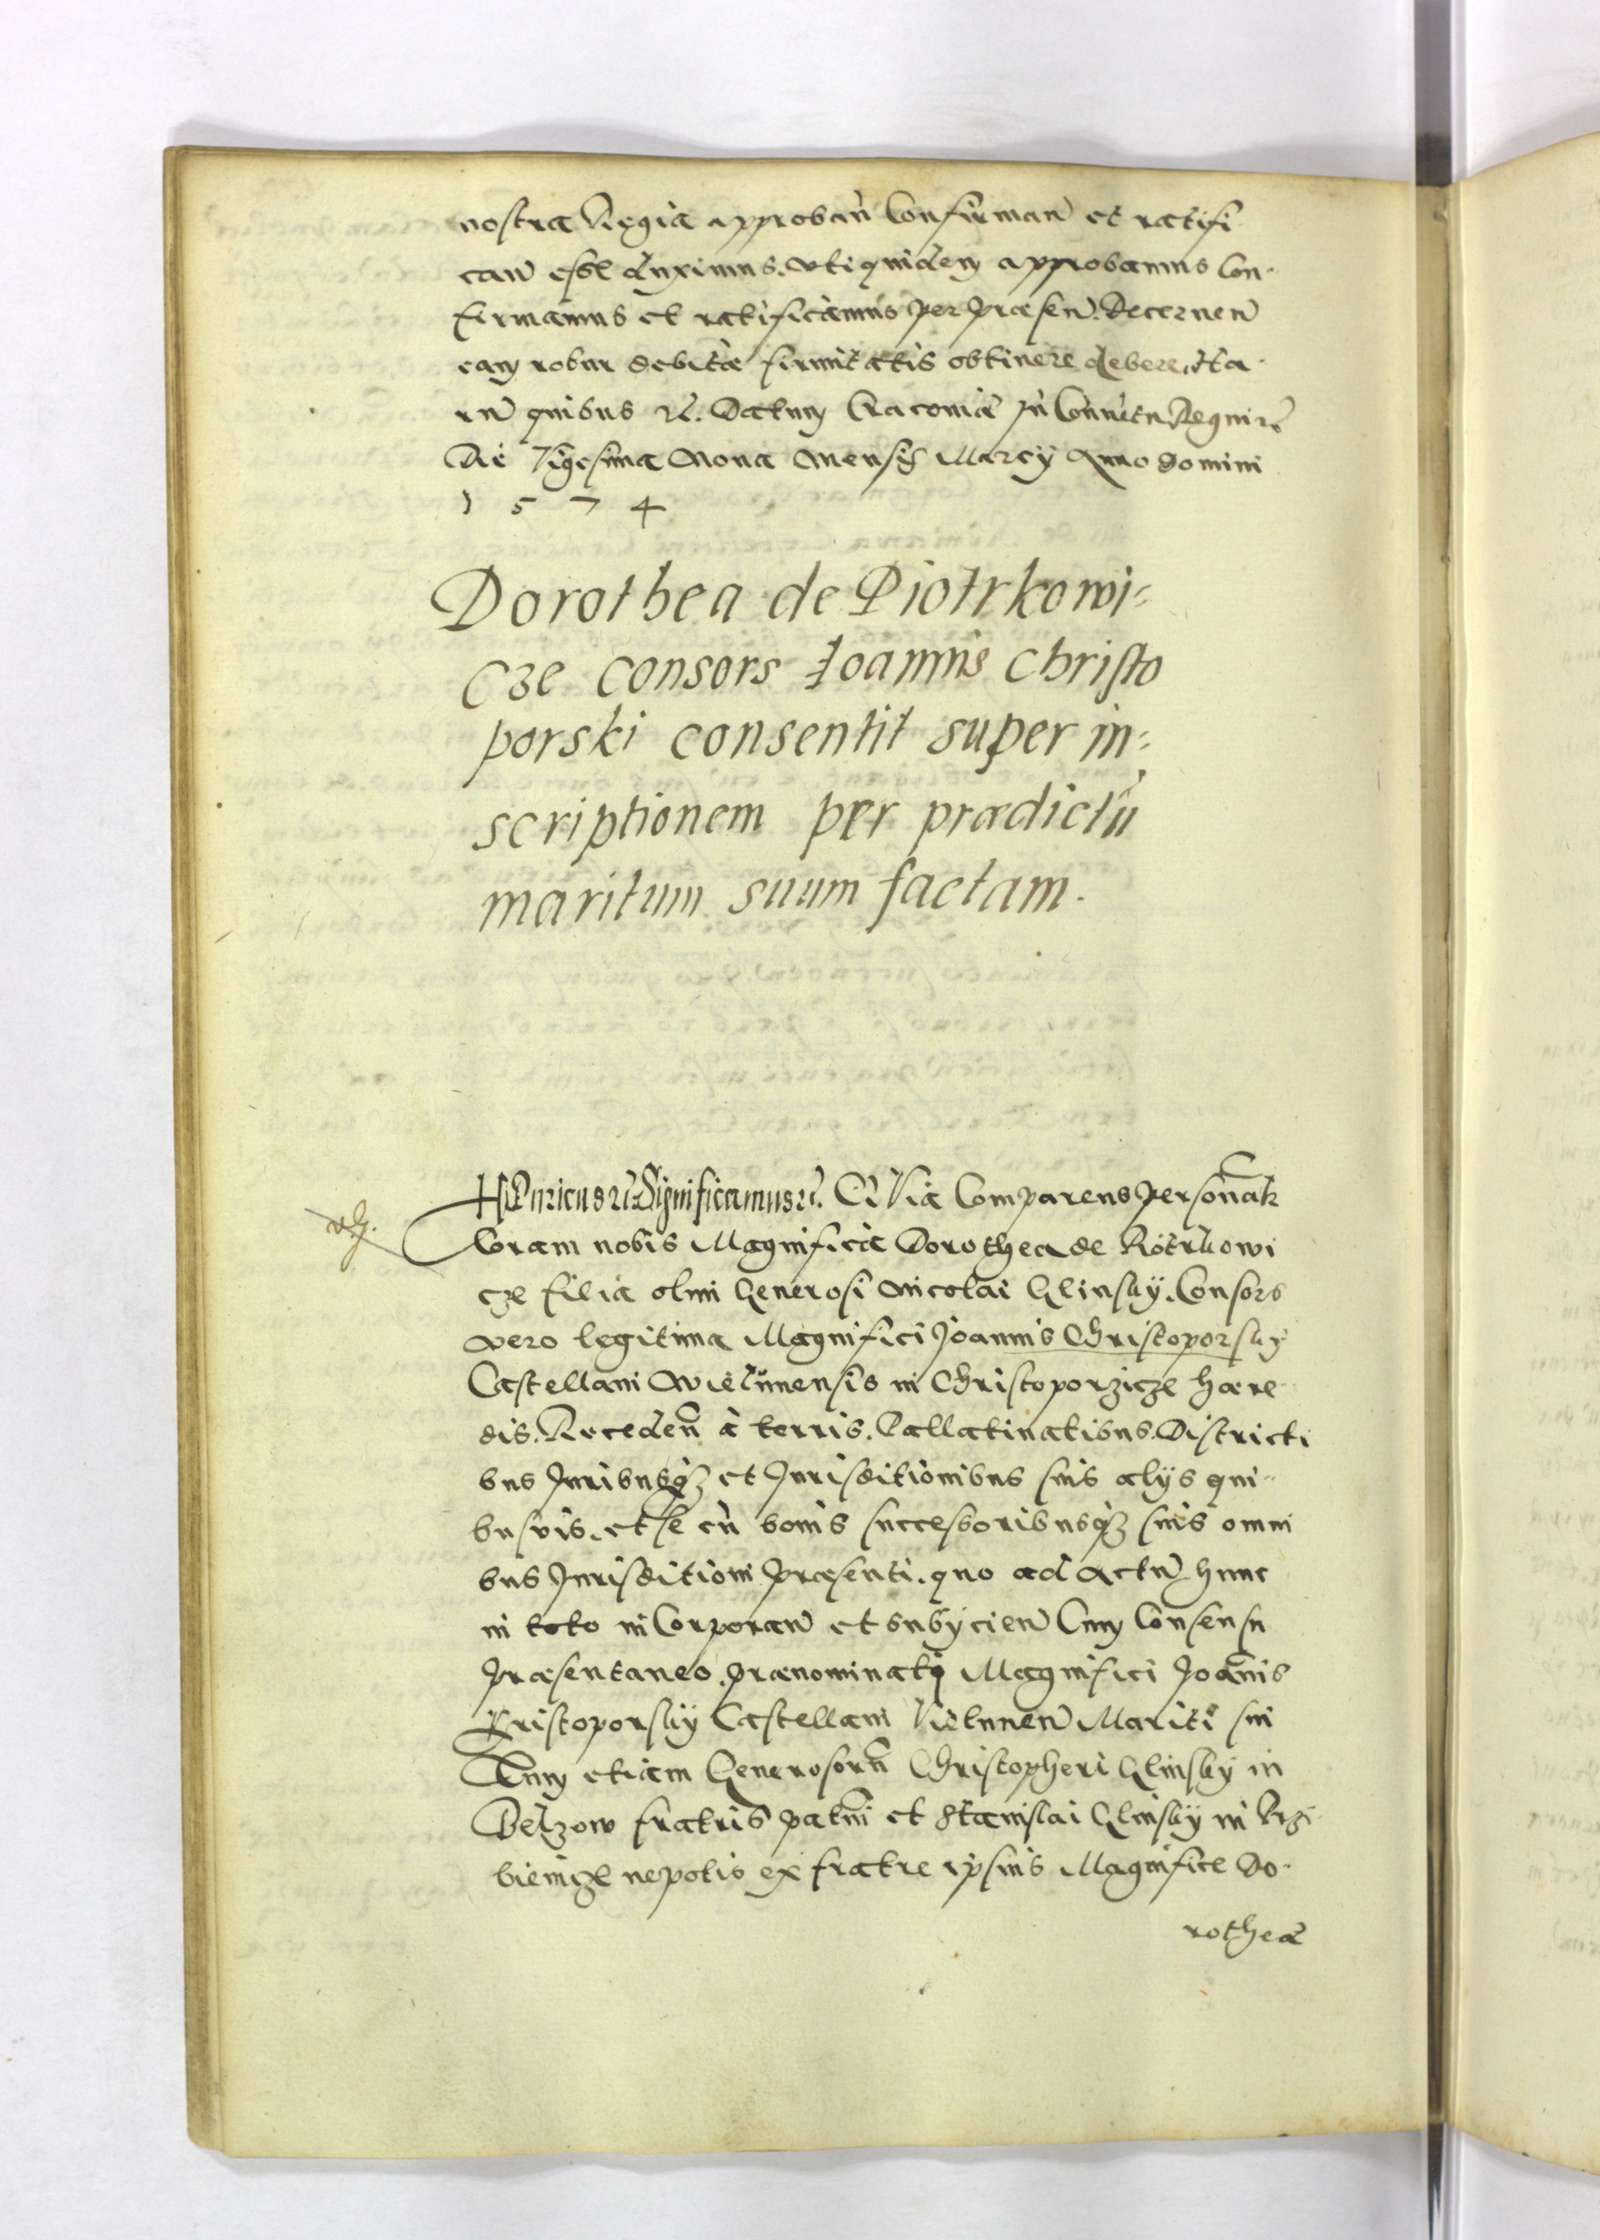 nostra Regia approban̄ Confirman̄ et ratifi
can̄ esse duximus. Uti quidem approbamus Con-
firmamus et ratificamus per præsen̄. Decernen̄
eam robur debitæ firmitatis obtinere debere. Ha-
rū quibus rc̄. Datum Cracoviæ in Conventu Regni rc̄
Die Vigesima Nona Mensis Marcÿ Anno domini
1574
Dorothea de Piotrkowi=
cze consors Ioannis Christo
porski consentit super in=
scriptionem per prædictū
maritum suum factam.
Henricus rc̄ Significamus rc̄. Quia Comparens personalr̄
Coram nobis Magnifica Dorothea de Piotrkowi
cze filia olim Generosi Nicolai Glinskÿ. Consors
vero legitima Magnifici Joannis Christoporskÿ
Castellani Wielunensis in Christoporzicze hære
dis. Receden̄ à terris. Pallatinatibus. Districti
bus Juribusqꝫ et Jurisditionibus suis alÿs qui-
busvis. et se cū bonis successoribusqꝫ suis omni
bus Jurisditioni præsenti. quo ad actū hunc
in toto inCorporan̄ et subÿcien̄ Cum Consensu
præsentaneo. prænominati Magnifici Joan̄is
Kristoporskÿ Castellani Vielunen̄ Mariti sui
Tum etiam Generosorū Christopheri Glinskÿ in
Belzow fratris patrui et Stanislai Glinskÿ in
nepotis ex fratre ipsius Magnifice Do-
rotheæ